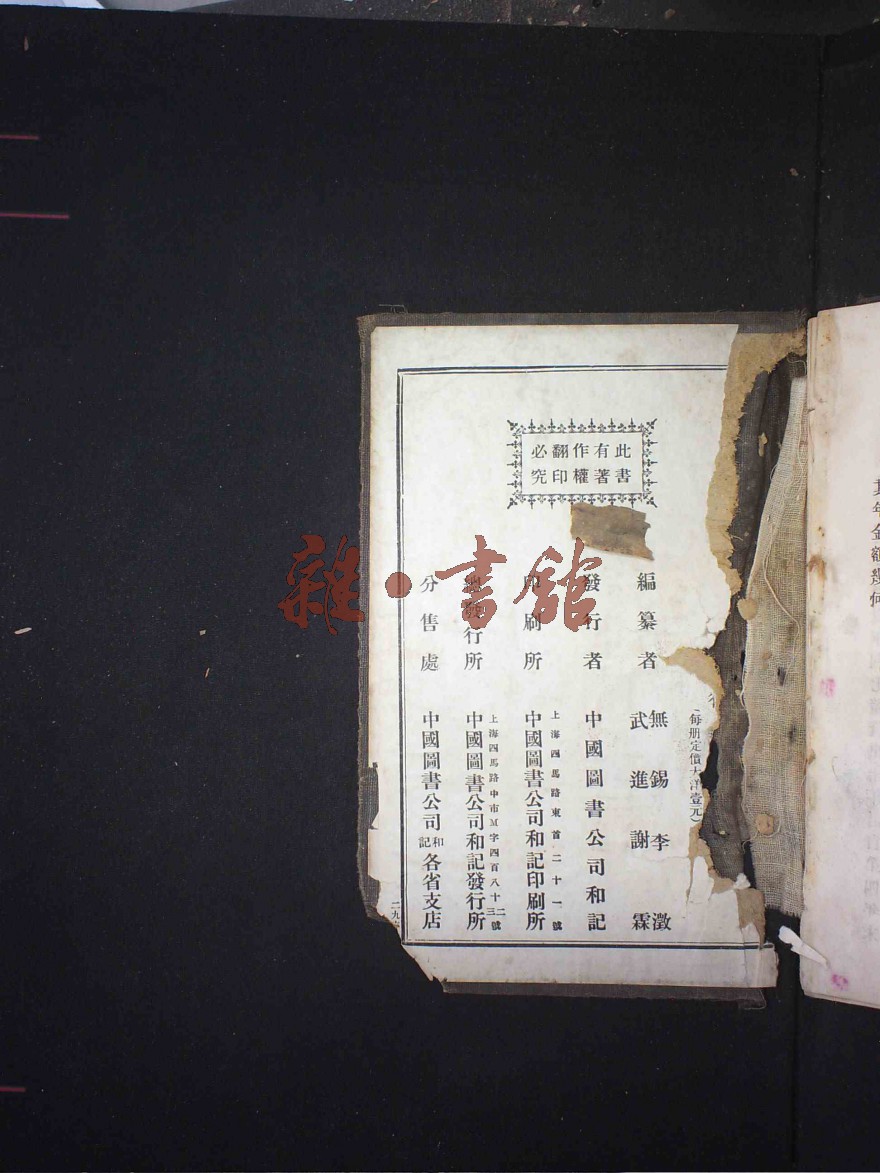 其年金額幾何
此書
有著
作權
翻印
必究
(每册定價大洋壹元)
編纂者 無錫李澂
武進謝霖
發行者 中國圖書公司和記
印刷所 上海四馬路東首二十一號
中國圖書公司和記印刷所
總發行所 上海四馬路中市M字四百八十二三號
中國圖書公司和記發行所
分售處 中國圖書公司和記各省支店
雜·書館